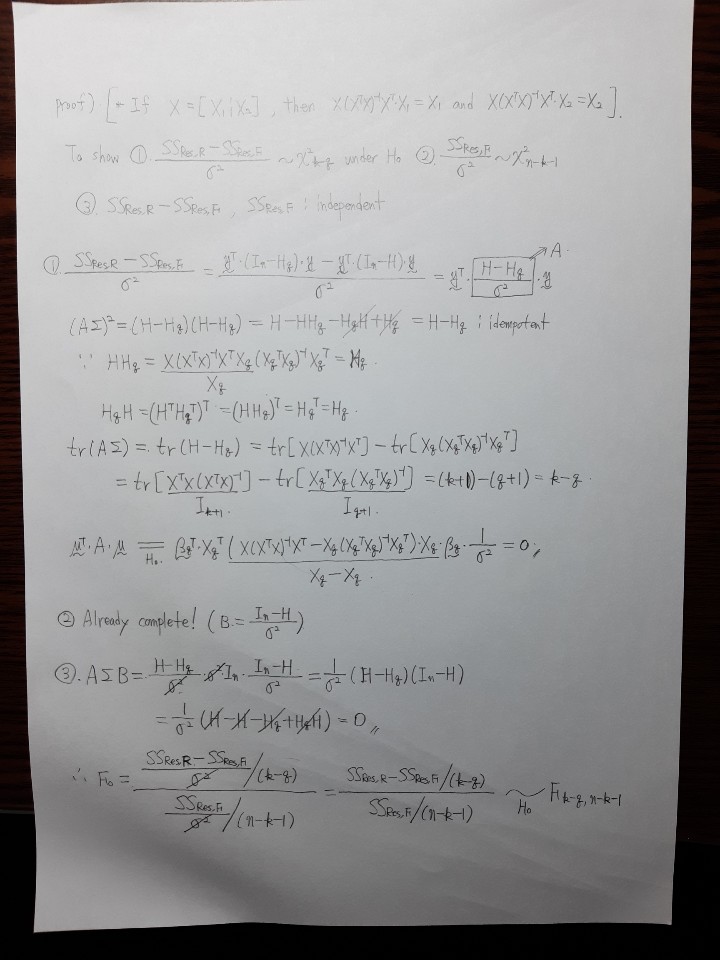 proof) [← If X = [X₁ ¦ X₂], then X(XᵀX)⁻¹Xᵀ·X₁ = X₁ and X(XᵀX)⁻¹Xᵀ·X₂ = X₂].
To show ① (SS_Res,R − SS_Res,F)/σ² ~ χ²_{k-q} under H₀ ②. SS_Res,F/σ² ~ χ²_{n-k-1}
③. SS_Res,R − SS_Res,F, SS_Res,F : independent
① (SS_Res,R − SS_Res,F)/σ² = (yᵀ·(Iₙ−H_q)·y − yᵀ·(Iₙ−H)·y)/σ² = yᵀ·[(H−H_q)/σ²]·y → A
(AΣ)² = (H−H_q)(H−H_q) = H−HH_q−H_qH+H_q = H−H_q : idempotent
∵ HH_q = X(XᵀX)⁻¹XᵀX_q(X_qᵀX_q)⁻¹X_qᵀ = H_q.
X_q
H_qH = (HᵀH_qᵀ)ᵀ = (HH_q)ᵀ = H_qᵀ = H_q.
tr(AΣ) = tr(H−H_q) = tr[X(XᵀX)⁻¹Xᵀ] − tr[X_q(X_qᵀX_q)⁻¹X_qᵀ]
= tr[XᵀX(XᵀX)⁻¹] − tr[X_qᵀX_q(X_qᵀX_q)⁻¹] = (k+1)−(q+1) = k−q.
I_{k+1} I_{q+1}
μᵀ·A·μ =_{H₀} β_qᵀ·X_qᵀ(X(XᵀX)⁻¹Xᵀ−X_q(X_qᵀX_q)⁻¹X_qᵀ)·X_q·β_q·1/σ² = 0
X_q−X_q.
② Already complete! (B = (Iₙ−H)/σ²)
③. AΣB = (H−H_q)/σ²·σ²Iₙ·(Iₙ−H)/σ² = 1/σ² (H−H_q)(Iₙ−H)
= 1/σ² (H−H−H_q+H_qH) = 0
∴ F₀ = ((SS_Res,R−SS_Res,F)/σ²/(k−q))/(SS_Res,F/σ²/(n−k−1)) = (SS_Res,R−SS_Res,F/(k−q))/(SS_Res,F/(n−k−1)) ~_{H₀} F_{k-q, n-k-1}